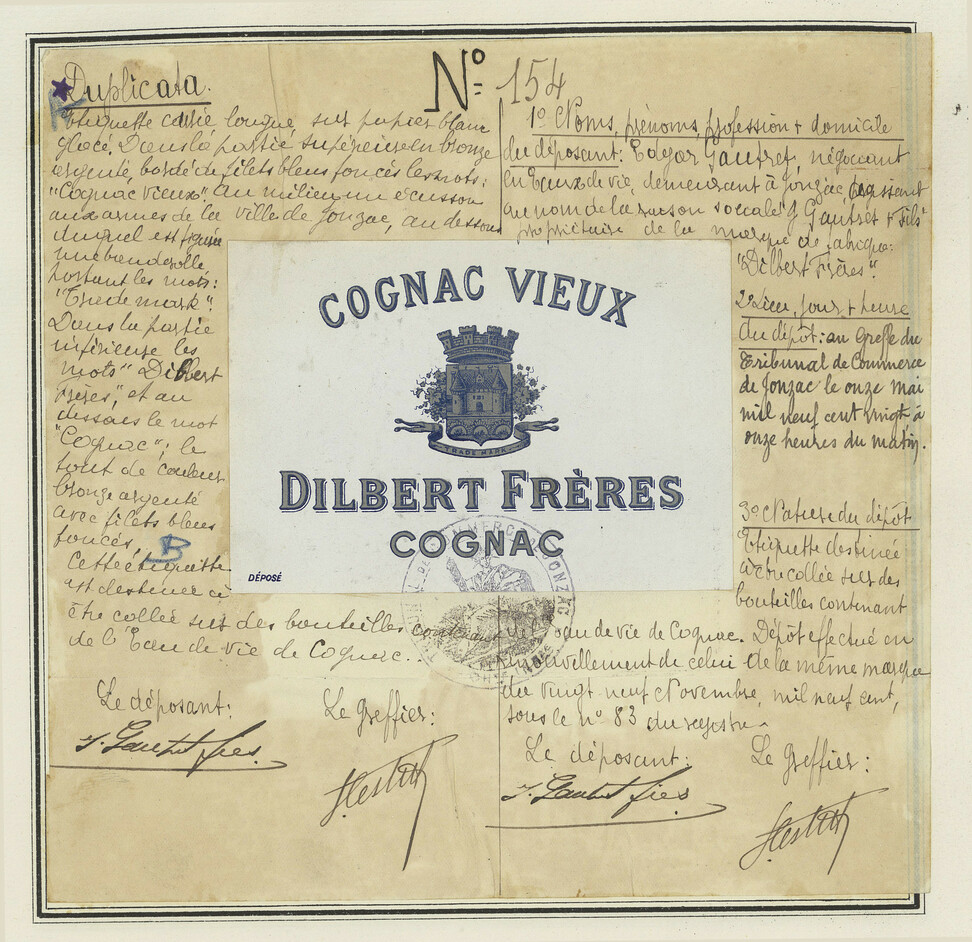 Nº 154
Duplicata.
Etiquette carrée longue, sur papier blanc
glacé. Dans la partie supérieure en bronze
argenté, bordé de filets bleus foncés les mots:
"Cognac Vieux". Au milieu un écusson
aux armes de la ville de Jonzac, au dessous
duquel est figurée
une banderolle
portant les mots:
"Trade mark".
Dans la partie
inférieure les
mots "Dilbert
Frères", et au
dessous le mot
"Cognac"; le
tout de couleur
bronze argenté
avec filets bleus
foncés.
B
Cette étiquette
est destinée à
être collée sur des bouteilles contenant de
de l'Eau de vie de Cognac.
Le déposant:
J. Gautret fils
Le Greffier:
COGNAC VIEUX
TRADE MARK
DILBERT FRÈRES
COGNAC
DÉPOSÉ
TRIBUNAL DE COMMERCE JONZAC
1º Noms, prénoms, profession + domicile
du déposant: Edgar Gautret, négociant
en Eaux de vie, demeurant à Jonzac, agissant
au nom de la raison sociale J Gautret + Fils
propriétaire de la marque de fabrique:
"Dilbert Frères".
2º Lieu, jour + heure
du dépôt: au Greffe du
Tribunal de Commerce
de Jonzac le onze mai
mil neuf cent vingt à
onze heures du matin.
3º Nature du dépôt
Etiquette destinée
à être collée sur des
bouteilles contenant
de l'eau de vie de Cognac. Dépôt effectué en
renouvellement de celui de la même marque
du vingt neuf Novembre, mil neuf cent,
sous le nº 83 du registre
Le déposant:
J. Gautret fils
Le Greffier: